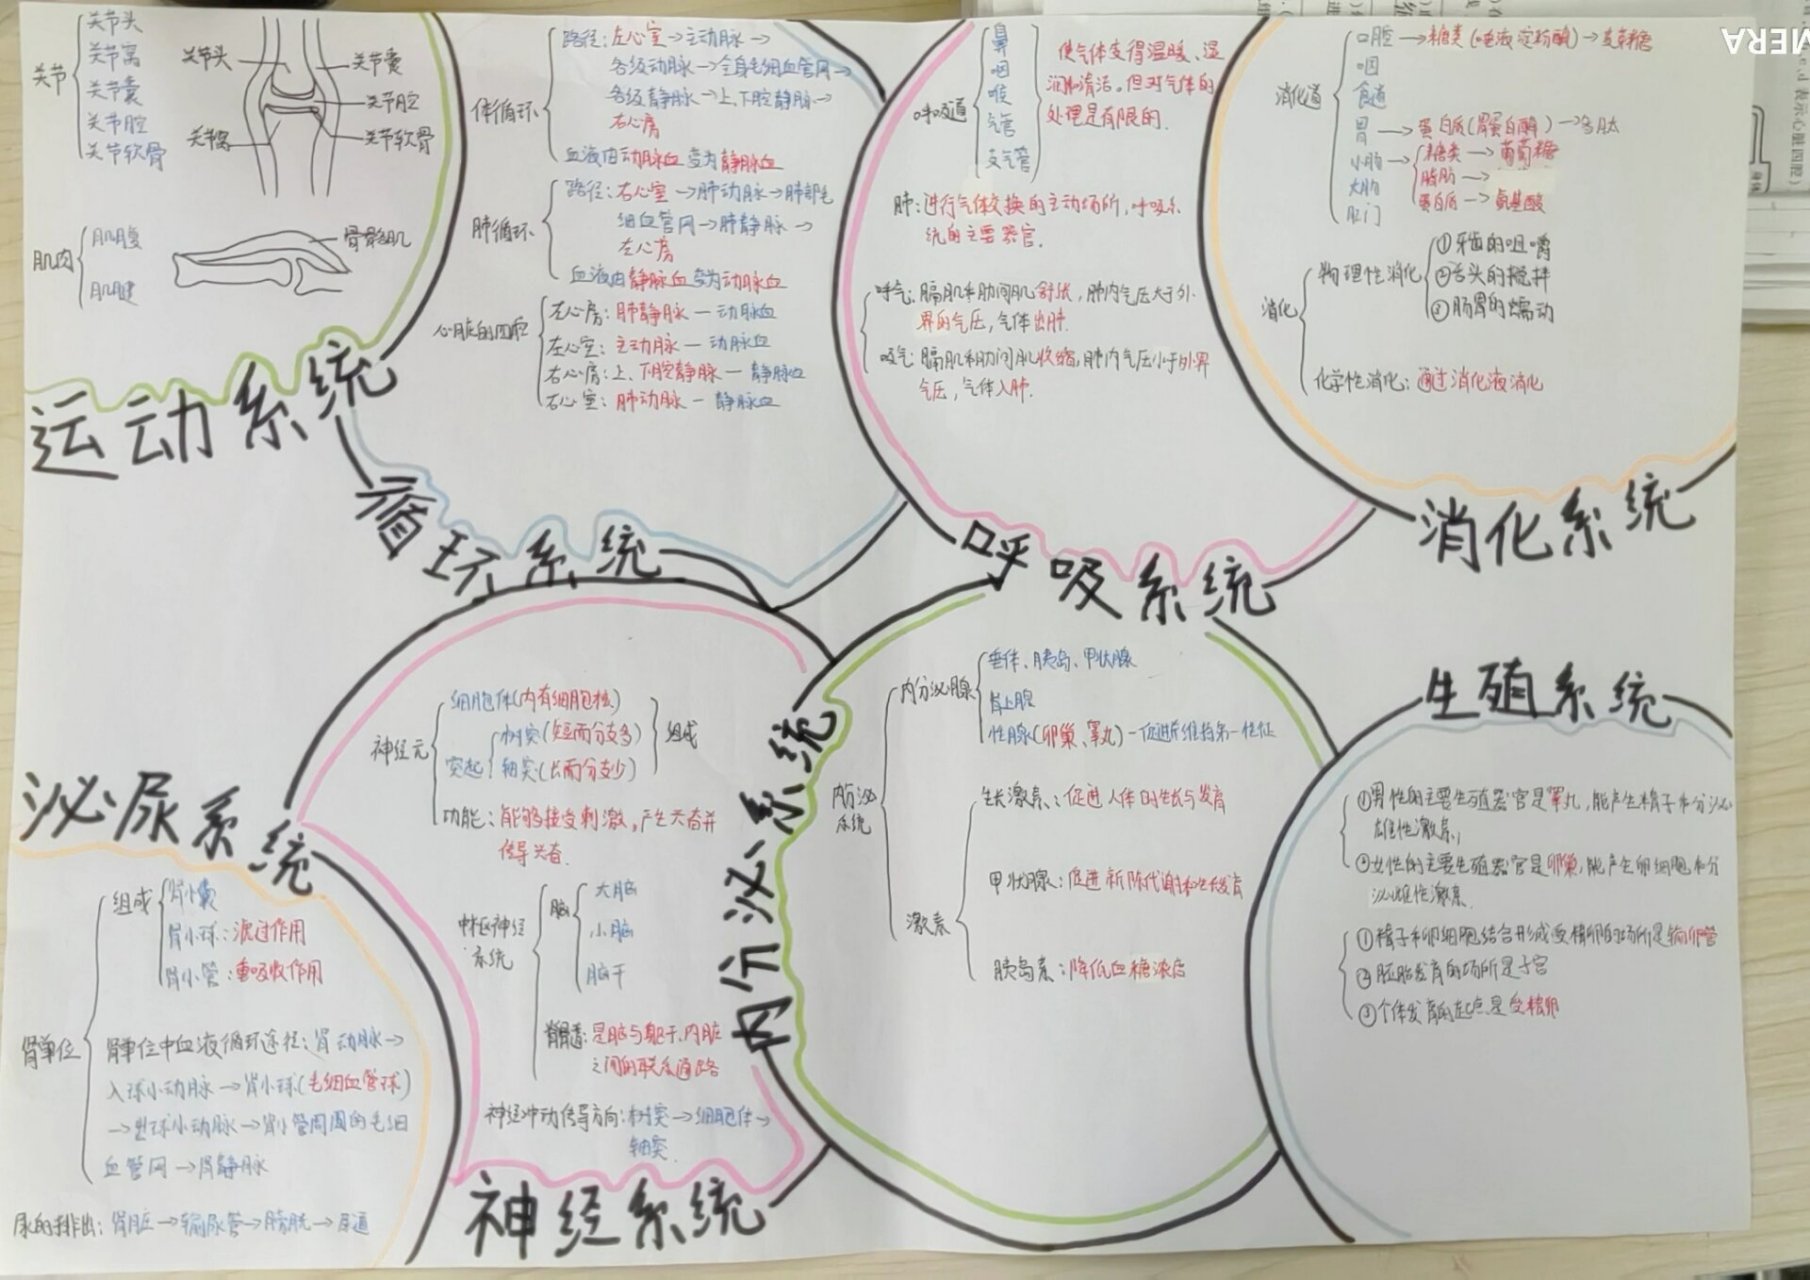 关节
关节头
关节窝
关节囊
关节腔
关节软骨
关节头
关节窝
关节囊
关节腔
关节软骨
肌肉
肌腹
肌腱
骨骼肌
运动系统
体循环
路径：左心室→主动脉→
各级动脉→全身毛细血管网→
各级静脉→上、下腔静脉→
右心房
血液由动脉血变为静脉血
肺循环
路径：右心室→肺动脉→肺部毛
细血管网→肺静脉→
左心房
血液由静脉血变为动脉血
心脏的四腔
左心房：肺静脉—动脉血
左心室：主动脉—动脉血
右心房：上、下腔静脉—静脉血
右心室：肺动脉—静脉血
循环系统
呼吸道
鼻
咽
喉
气管
支气管
使气体变得温暖、湿
润和清洁。但对气体的
处理是有限的.
肺：进行气体交换的主动场所，呼吸系
统的主要器官.
呼气：膈肌和肋间肌舒张，肺内气压大于外
界的气压，气体出肺.
吸气：膈肌和肋间肌收缩，肺内气压小于外界
气压，气体入肺.
呼吸系统
消化道
口腔→糖类（唾液淀粉酶）→麦芽糖
咽
食道
胃→蛋白质（胃蛋白酶）→多肽
小肠→糖类→葡萄糖
脂肪→
蛋白质→氨基酸
大肠
肛门
消化
物理性消化
①牙齿的咀嚼
②舌头的搅拌
③肠胃的蠕动
化学性消化：通过消化液消化
消化系统
泌尿系统
肾单位
组成
肾小囊
肾小球：滤过作用
肾小管：重吸收作用
肾单位中血液循环途径：肾动脉→
入球小动脉→肾小球（毛细血管球）
→出球小动脉→肾小管周围的毛细
血管网→肾静脉
尿的排出：肾脏→输尿管→膀胱→尿道
神经元
细胞体（内有细胞核）
突起
树突（短而分支多）
轴突（长而分支少）
组成
功能：能够接受刺激，产生兴奋并
传导兴奋.
中枢神经
系统
脑
大脑
小脑
脑干
脊髓：是脑与躯干、内脏
之间的联系通路
神经冲动传导方向：树突→细胞体→
轴突.
神经系统
内分泌系统
内分泌
系统
内分泌腺
垂体、胰岛、甲状腺
肾上腺
性腺（卵巢、睾丸）—促进和维持第一性征
激素
生长激素：促进人体的生长与发育
甲状腺：促进新陈代谢和生长发育
胰岛素：降低血糖浓度
生殖系统
①男性的主要生殖器官是睾丸，能产生精子和分泌
雄性激素；
②女性的主要生殖器官是卵巢，能产生卵细胞和分
泌雌性激素.
①精子和卵细胞结合形成受精卵的场所是输卵管
②胚胎发育的场所是子宫
③个体发育的起点是受精卵